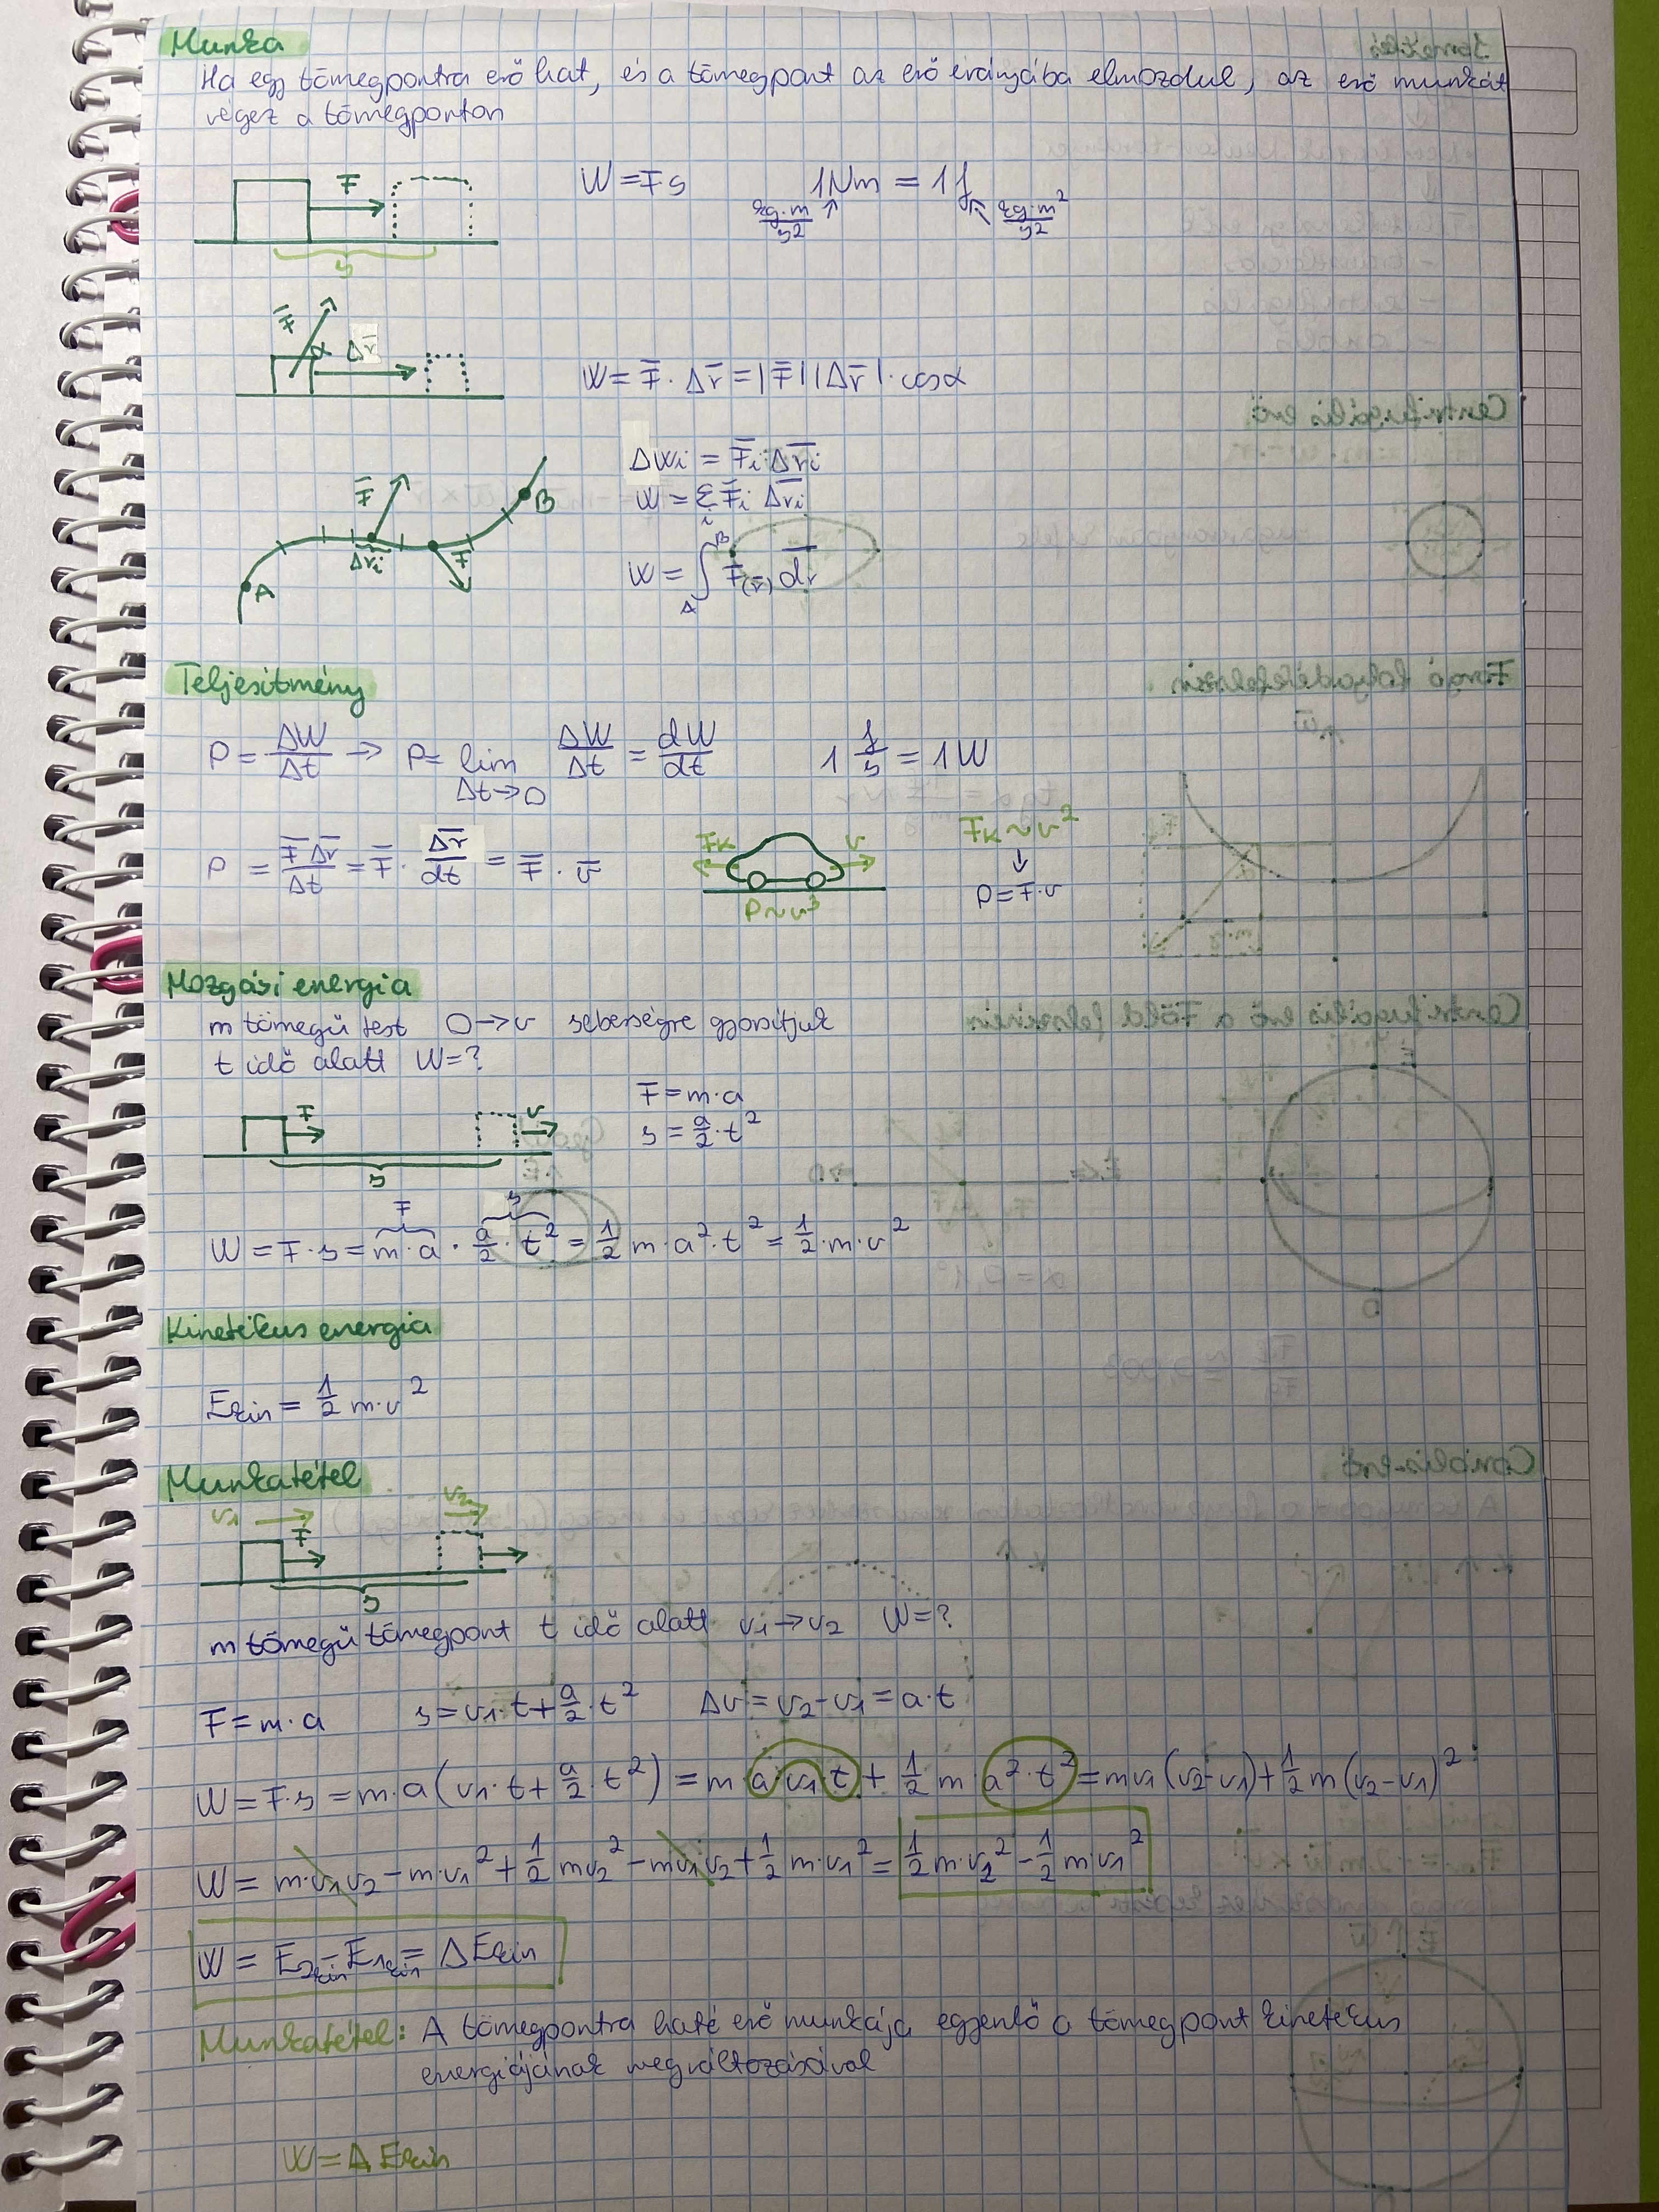 Munka
Ha egy tömegpontra erő hat, és a tömegpont az erő irányába elmozdul, az erő munkát
végez a tömegponton
F
s
W = F s
1Nm = 1J
kg·m/s²
kg·m²/s²
F̄ α Δr̄
W = F̄ · Δr̄ = |F̄||Δr̄|·cosα
ΔWi = F̄i·Δr̄i
W = Σi F̄i Δr̄i
W = ∫_A^B F̄(r̄) dr̄
F̄
Δri
F
A
B
Teljesítmény
P = ΔW/Δt → P = lim Δt→0 ΔW/Δt = dW/dt
1 J/s = 1W
P = F̄ Δr̄/Δt = F̄ · Δr̄/dt = F̄ · v̄
FK
v
P~v³
FK~v²
↓
P=F·v
Mozgási energia
m tömegű test 0→v sebességre gyorsítjuk
t idő alatt W=?
F
v
s
F = m·a
s = a/2·t²
F
s
W = F·s = m·a · a/2 · t² = 1/2 m·a²·t² = 1/2·m·v²
Kinetikus energia
Ekin = 1/2 m·v²
Munkatétel
v1
v2
F
s
m tömegű tömegpont t idő alatt v1→v2 W=?
F = m·a
s = v1·t + a/2·t²
Δv = v2-v1 = a·t
W = F·s = m·a(v1·t + a/2·t²) = m·a·v1·t + 1/2 m·a²·t² = mv1(v2-v1) + 1/2 m(v2-v1)²
W = m·v1v2 - m·v1² + 1/2 mv2² - mv1v2 + 1/2 m·v1² = 1/2 m·v2² - 1/2 m·v1²
W = E2kin - E1kin = ΔEkin
Munkatétel: A tömegpontra ható erő munkája egyenlő a tömegpont kinetikus
energiájának megváltozásával
W = ΔEkin